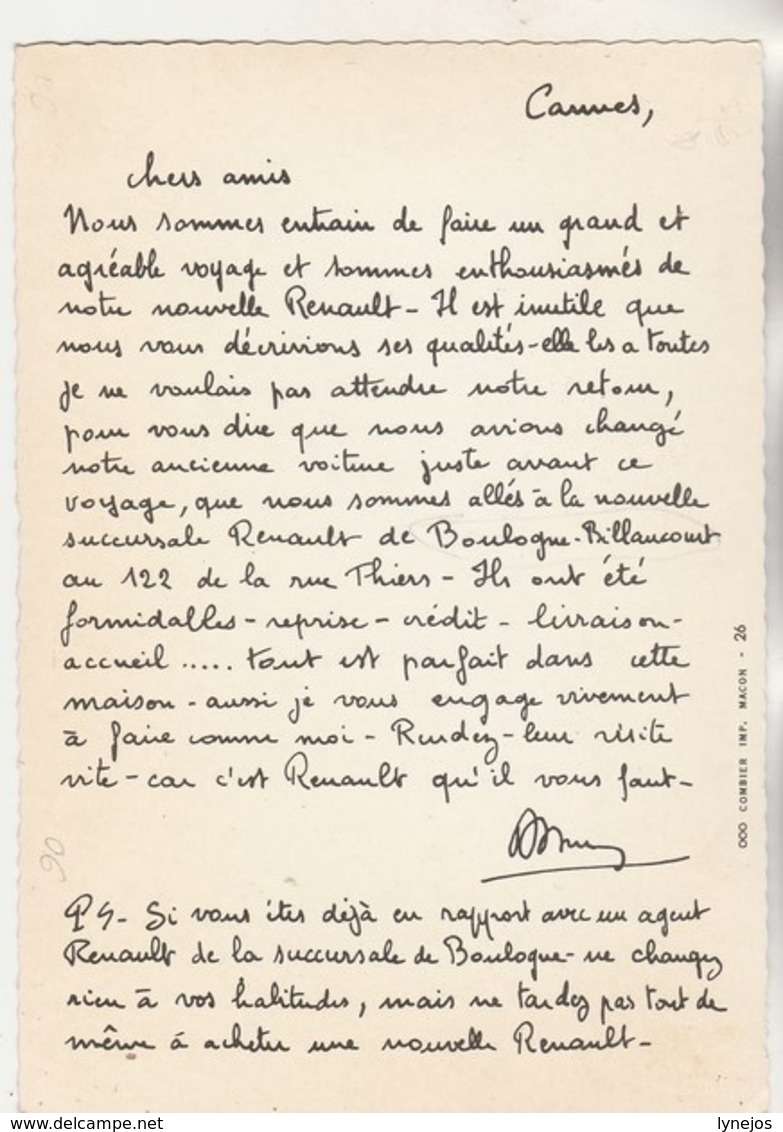 Cannes,
chers amis
Nous sommes entrain de faire un grand et
agréable voyage et sommes enthousiasmés de
notre nouvelle Renault - Il est inutile que
nous vous décrivions ses qualités - elle les a toutes
je ne voulais pas attendre notre retour,
pour vous dire que nous avions changé
notre ancienne voiture juste avant ce
voyage, que nous sommes allés à la nouvelle
succursale Renault de Boulogne-Billancourt
au 122 de la rue Thiers - Ils ont été
formidables - reprise - crédit - livraison -
accueil ..... tout est parfait dans cette
maison - aussi je vous engage vivement
à faire comme moi - Rendez-leur visite
vite - car c'est Renault qu'il vous faut -
PS - Si vous êtes déjà en rapport avec un agent
Renault de la succursale de Boulogne - ne changez
rien à vos habitudes, mais ne tardez pas tout de
même à acheter une nouvelle Renault -
OOO COMBIER IMP. MACON - 26
90
www.delcampe.net
lynejos